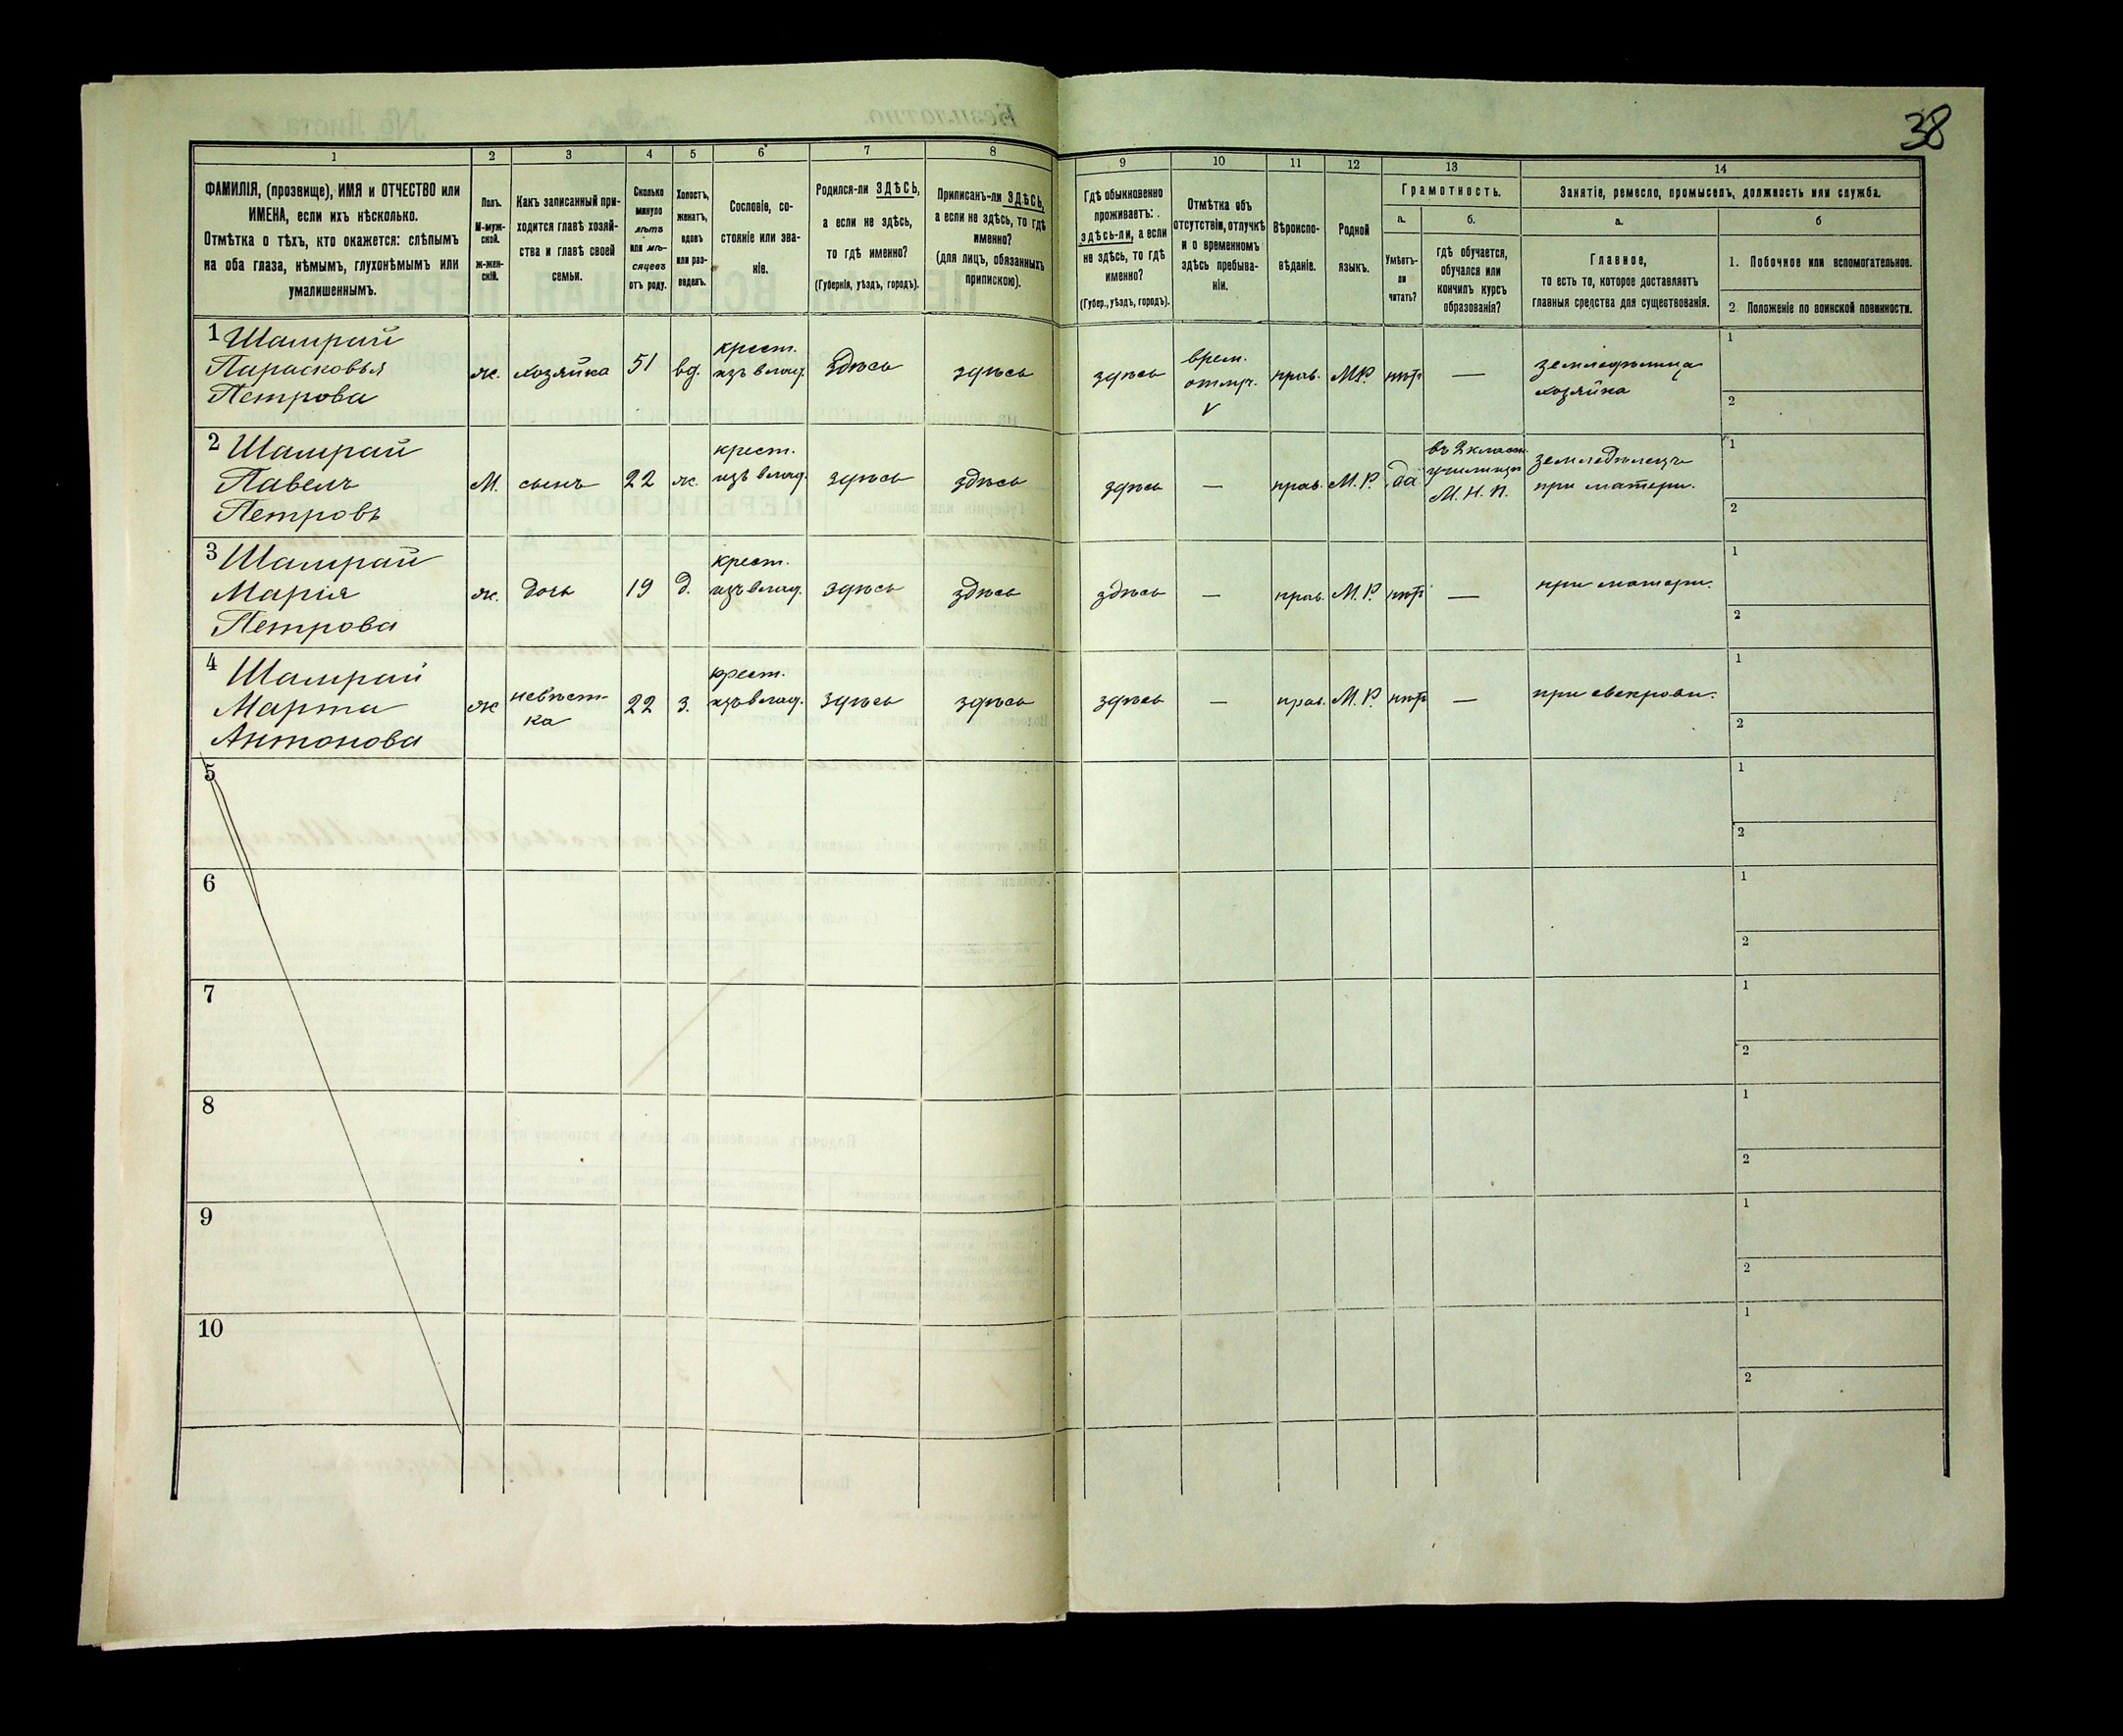 38
1 2 3 4 5 6 7 8 9 10 11 12 13 14
ФАМИЛІЯ, (прозвище), ИМЯ и ОТЧЕСТВО или
ИМЕНА, если ихъ нѣсколько.
Отмѣтка о тѣхъ, кто окажется: слѣпымъ
на оба глаза, нѣмымъ, глухонѣмымъ или
умалишеннымъ.
Полъ.
М-муж-
ской.
ж-жен-
скій.
Какъ записанный при-
ходится главѣ хозяй-
ства и главѣ своей
семьи.
Сколько
минуло
лѣтъ
или мѣ-
сяцевъ
отъ роду.
Холостъ,
женатъ,
вдовъ
или раз-
веденъ.
Сословіе, со-
стояніе или зва-
ніе.
Родился-ли ЗДѢСЬ,
а если не здѣсь,
то гдѣ именно?
(Губернія, уѣздъ, городъ).
Приписанъ-ли ЗДѢСЬ,
а если не здѣсь, то гдѣ
именно?
(для лицъ, обязанныхъ
припискою).
Гдѣ обыкновенно
проживаетъ:
здѣсь-ли, а если
не здѣсь, то гдѣ
именно?
(Губер., уѣздъ, городъ).
Отмѣтка объ
отсутствіи, отлучкѣ
и о временномъ
здѣсь пребыва-
ніи.
Вѣроиспо-
вѣданіе.
Родной
языкъ.
Грамотность.
а. б.
Умѣетъ-
ли
читать?
гдѣ обучается,
обучался или
кончилъ курсъ
образованія?
Занятіе, ремесло, промыселъ, должность или служба.
а. б
Главное,
то есть то, которое доставляетъ
главныя средства для существованія.
1. Побочное или вспомогательное.
2. Положеніе по воинской повинности.
1 Шамрай
Парасковья
Петрова
ж. хозяйка 51 вд.
крест.
изъ влад.
здѣсь здѣсь здѣсь
врем.
отлуч.
v
прав. М.Р. нѣтъ —
земледѣлица
хозяйка
1
2
2 Шамрай
Павелъ
Петровъ
М. сынъ 22 ж.
крест.
изъ влад.
здѣсь здѣсь здѣсь — прав. М.Р. да
въ 2 классн.
училищѣ
М.Н.П.
земледѣлецъ
при матери.
1
2
3 Шамрай
Марія
Петрова
ж. дочь 19 д.
крест.
изъ влад.
здѣсь здѣсь здѣсь — прав. М.Р. нѣтъ —
при матери.
1
2
4 Шамрай
Марта
Антонова
ж
невѣст-
ка
22 з.
крест.
изъ влад.
здѣсь здѣсь здѣсь — прав. М.Р. нѣтъ —
при свекрови.
1
2
5
1
2
6
1
2
7
1
2
8
1
2
9
1
2
10
1
2